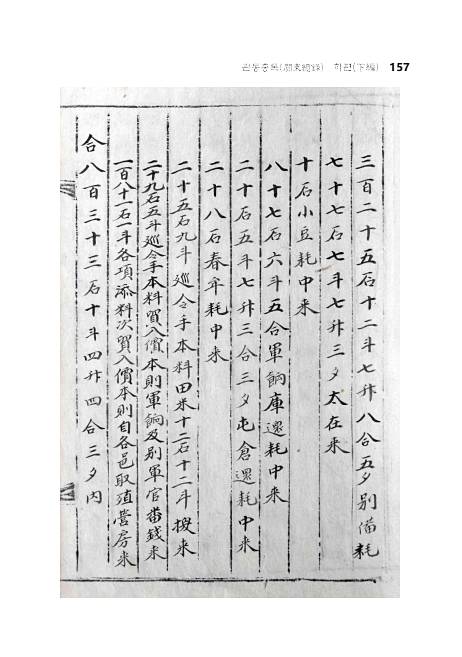 관동총록(關東總錄) 하편(下編) 157
三百二十五石十二斗七升八合五夕別備耗
七十七石七斗七升三夕太在来
十石小豆耗中来
八十七石六斗五合軍餉庫還耗中来
二十石五斗七升三合三夕屯倉還耗中来
二十八石春牟耗中来
二十五石九斗巡令手本料田米十二石十二斗換来
二十九石五斗巡令手本料買入價本則軍餉及别軍官番錢来
一百八十一石一斗各項添料次買入價本則自各邑取殖營房来
合八百三十三石十斗四升四合三夕內